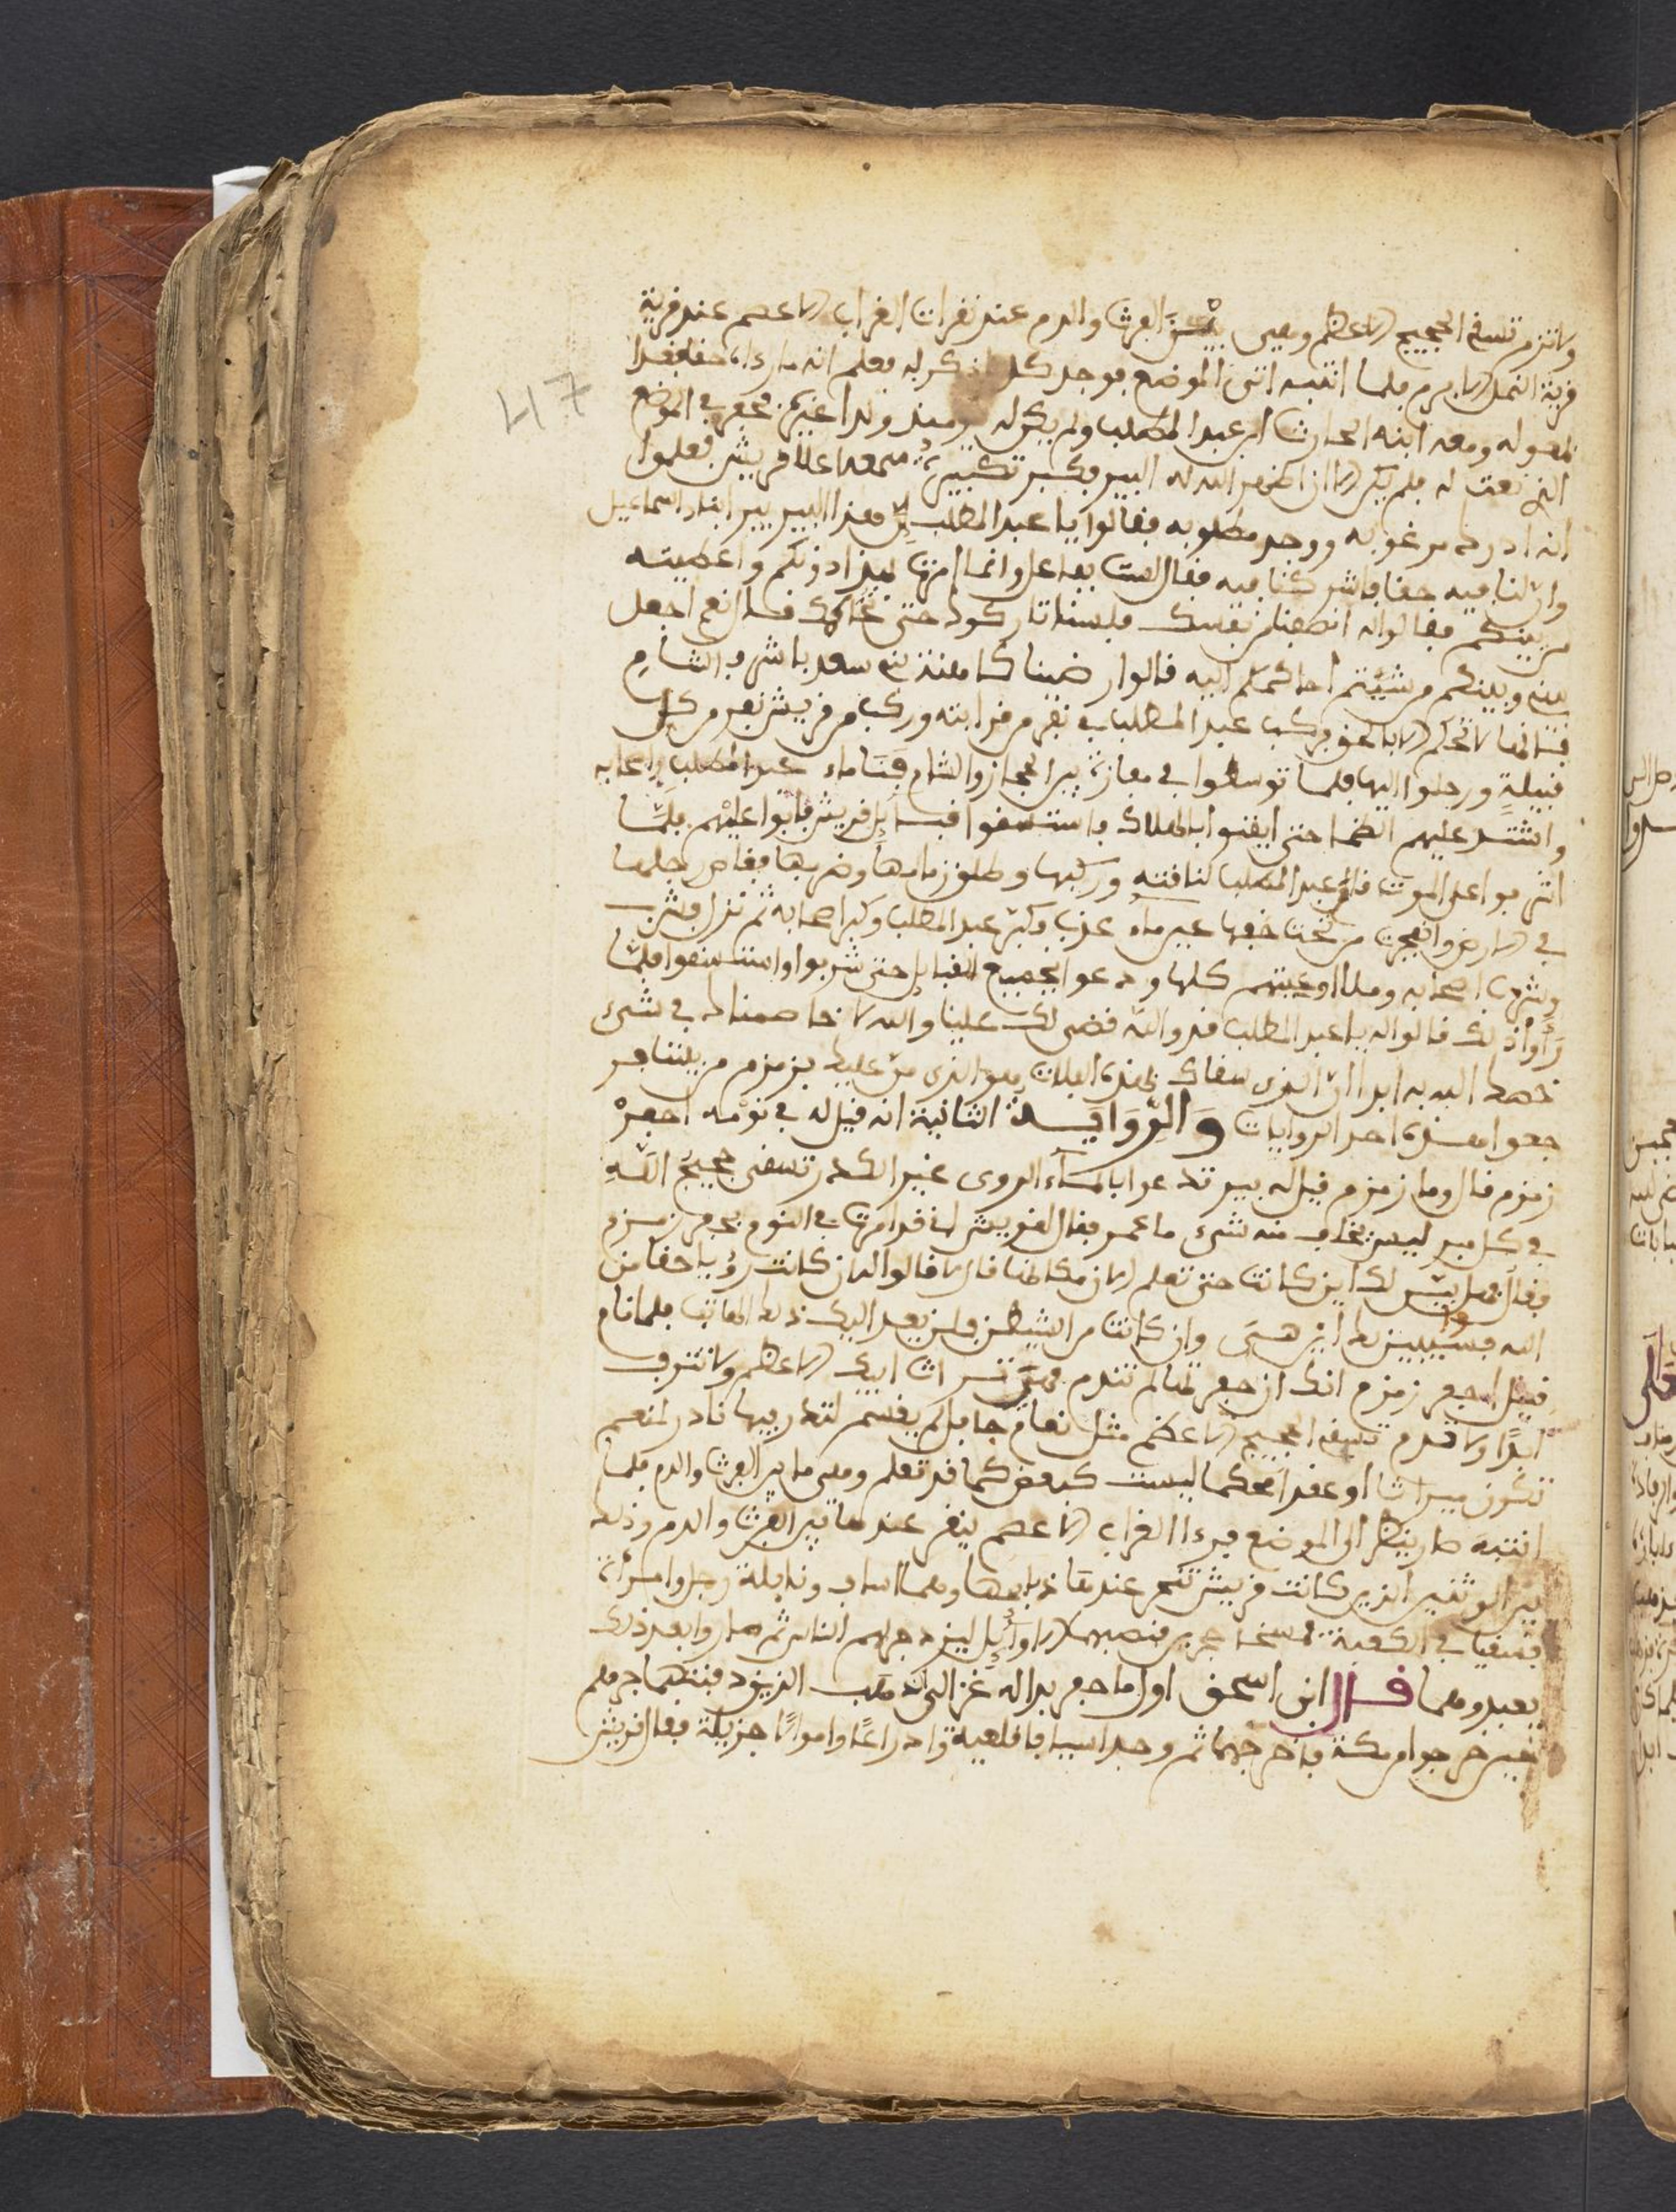 ولا تذم تسقي الحجيج الاعظم وهي بين الفرث والدم عند نقرات الغراب الاعصم عند قرية
قرية النمل الابرم فلما انتبه اتى الموضع فوجد كل ذكر له فعلم انه ما رءاه حقا فغدا
بمعوله ومعه ابنه الحارث ابن عبد المطلب ولم يكن له يومئذ ولدا غيره فحفر في الموضع
الذي نعت له فلم يكن الا ان اظهر الله له البير فكبر تكبيرة سمعها اعلا قريش فعلموا
انه ادرك مرغوبه ووجد مطلوبه فقالوا يا عبد المطلب إنّ هذا البير بير ابينا اسماعيل
وان لنا فيه حقا فاشركنا فيه فقال لست بفاعل وانما امرت به دونكم واعطيته
من بينكم فقالوا له انصفنا من نفسك فلسنا تاركوك حتى نحاكمك فقال نعم اجعل
بيني وبينكم من شيتم احاكمكم اليه قالوا رضينا كاهنة بني سعد باشرف الشام
فبيلة ورحلوا اليها فلما توسطوا في مفازة بين الحجاز والشام فنا ماء عبد المطلب واصحابه
واشتد عليهم الظما حتى ايقنوا بالهلاك فاستسقوا قبايل قريش فابوا عليهم فلما
اشرفوا على الموت قام عبد المطلب لناقته وركبها وطلق زمامها وضربها فغاص رجلها
في الارض وانفجرت من تحت خفها عين ماء عذب فكبر عبد المطلب وكبر اصحابه ثم نزل وشرب
وشرب اصحابه وملا اوعيتهم كلها ودعوا بجميع القبايل حتى شربوا واستسقوا فلما
رَأوا ذلك قالوا له يا عبد المطلب قد والله قضى لك علينا والله لا نخاصمناك في شيء
خصك الله به ابدا ان الذي سقاك بهذه الفلات هو الذي من عليك بزمزم من بيننا فر
جعوا هذه احد الروايات وَالرِّوَايَة الثانية انه قيل له في نومه احفرْ
زمزم قال وما زمزم قيل له بير تدعوا بالماء الروى غير الكدر تسقى حجيج اللهِ
في كل مبر ليس يخاف منه شيء ما عمر فقال لقريش اني قد امرت في النوم بحفر زمزم
فقال هل بيّن لك اين كانت حتى تعلم الان مكانها قال لا قالوا له ان كانت رؤيا حقا من
الله فسيبين لك أين هي وان كانت من الشيطان فلن يعد اليك ذلك الهاتف فلما نام
قيل احفر زمزم انك ان حفرتها لم تندم فهي تراث ابيك الاعظم ولا تنزف
ابدًا ولا تذم تسقي الحجيج الاعظم مثل نعام جافل لم يقسم لنذر فيها ناذر لمنعم
تكون ميراثا او عقدا محكما ليست كبعض كما قد تعلم وهي ما بين الفرث والدم فلما
انتبه صار ينظر الى الموضع فرءا الغراب الاعصم ينقر عندها بين الفرث والدم وذلك
بين الوثنين الذين كانت قريش تنحر عندها ذبايحها وهما اساف ونايلة رجل وامرأة
فسقيا في الكعبة فمسخا حجرين فنصبهما الاوايل ليزدجر لهم الناس ثم صاروا بعد ذلك
يعبدوهما قال ابن اسحق اول ما حفر بدا له غزالين ذهب الذي دفنتهما جرهم
حين خرجوا من مكة فاخرجهما ثم وجد اسيافا قلعية وادراعًا واموالا جزيلة فقال قريش